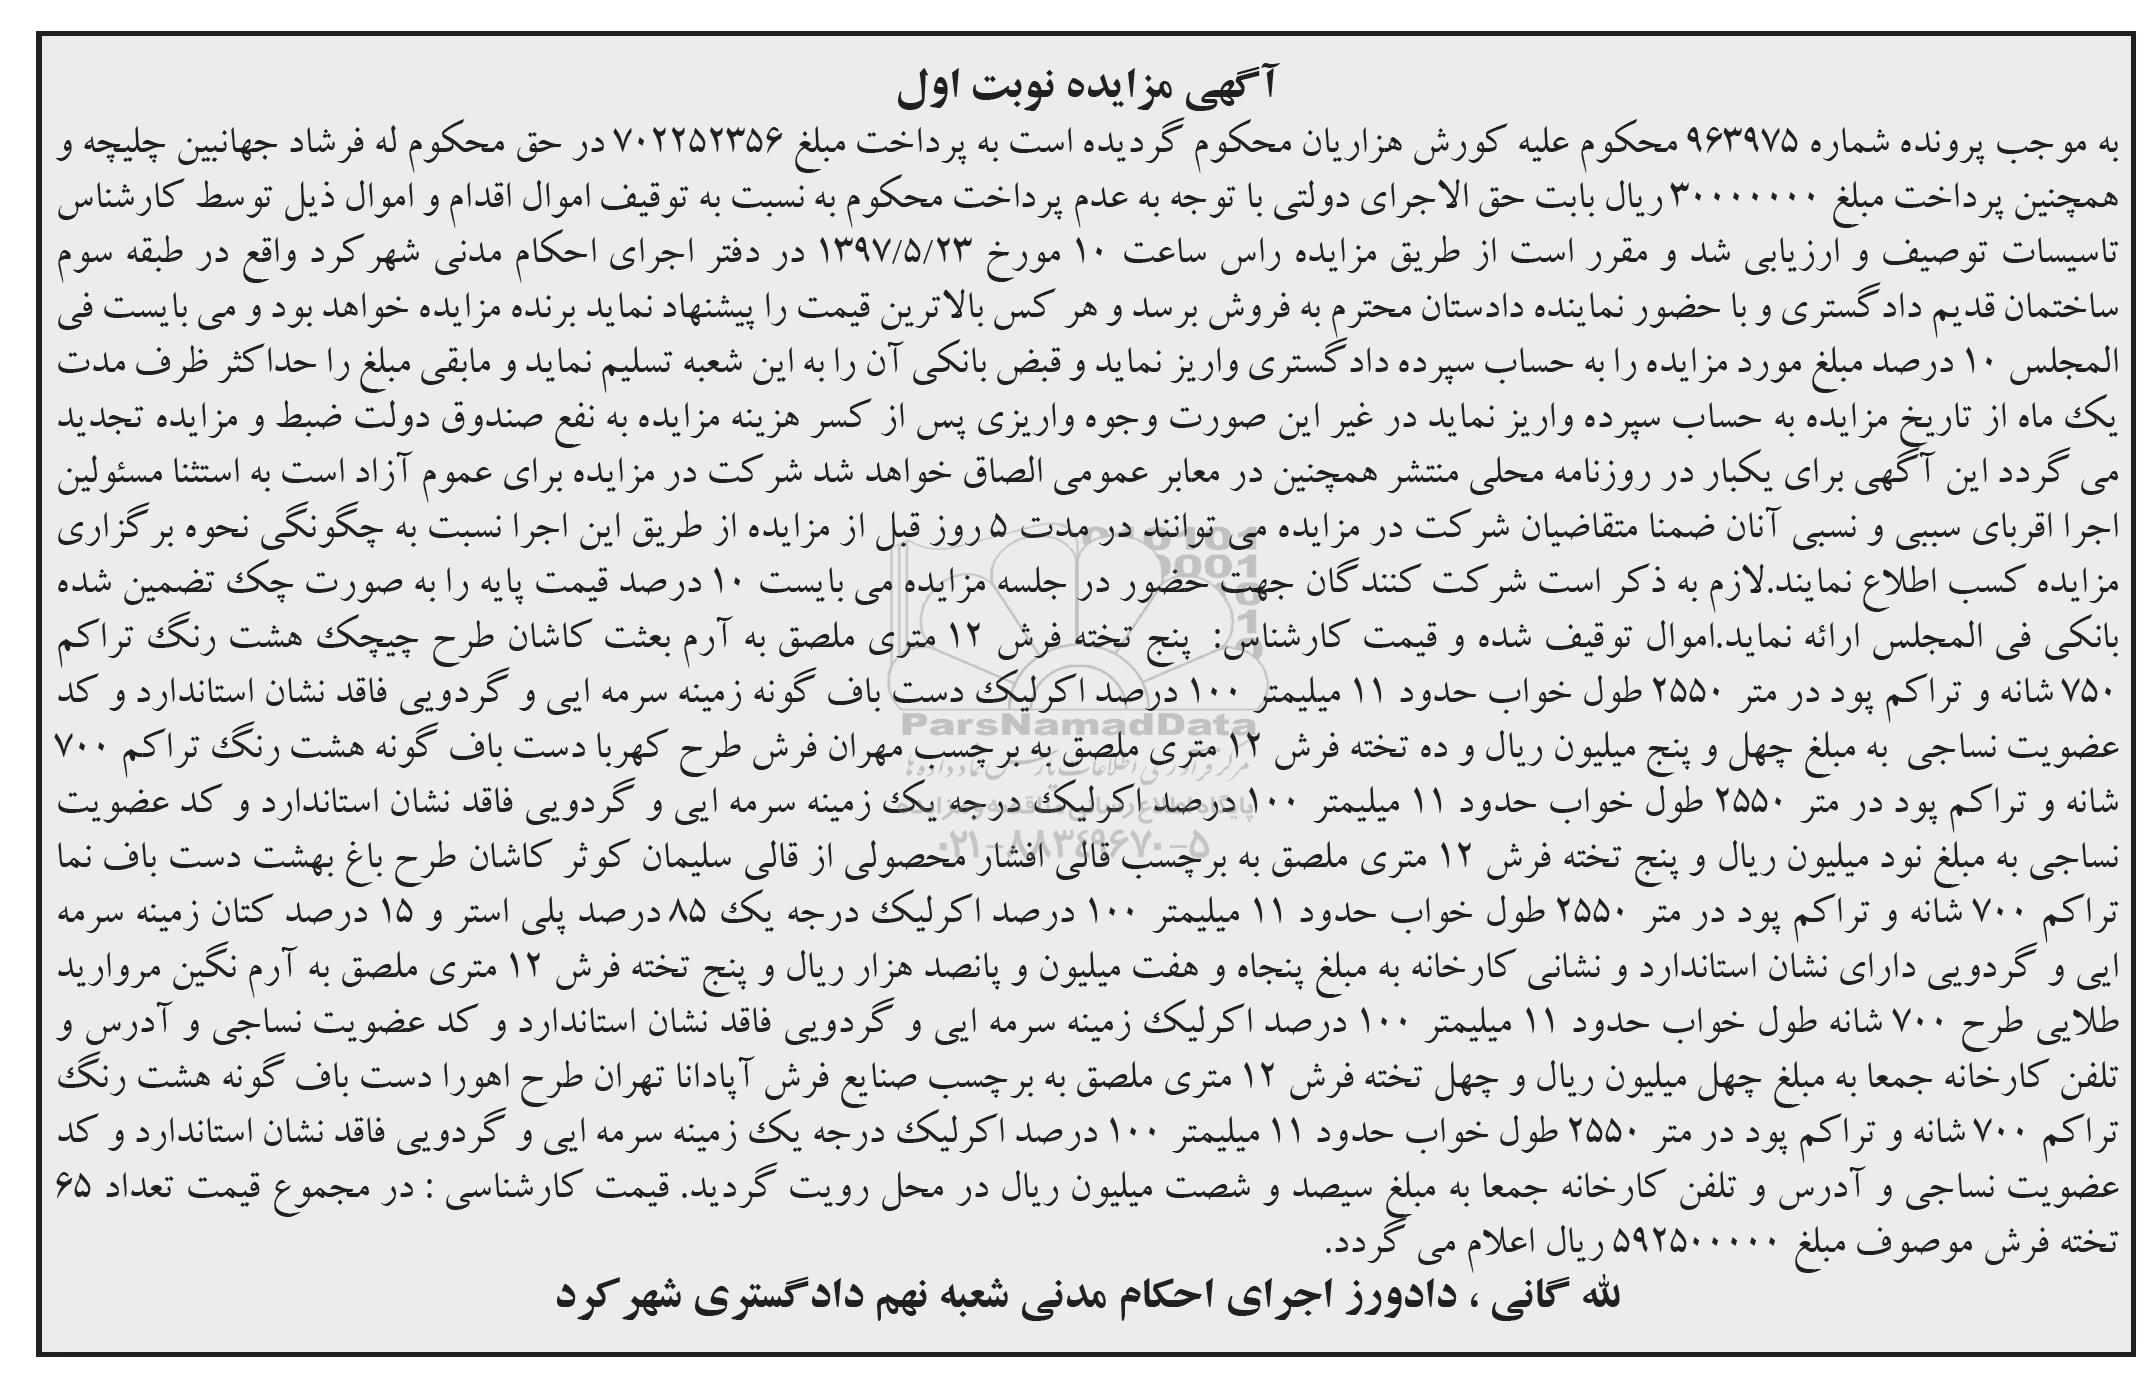 آگهی مزایده نوبت اول
به موجب پرونده شماره ۹۶۳۹۷۵ محکوم علیه کورش هزاریان محکوم گردیده است به پرداخت مبلغ ۷۰۲۲۵۲۳۵۶ در حق محکوم له فرشاد جهانبین چلیچه و
همچنین پرداخت مبلغ ۳۰۰۰۰۰۰۰ ریال بابت حق الاجرای دولتی با توجه به عدم پرداخت محکوم به نسبت به توقیف اموال اقدام و اموال ذیل توسط کارشناس
تاسیسات توصیف و ارزیابی شد و مقرر است از طریق مزایده راس ساعت ۱۰ مورخ ۱۳۹۷/۵/۲۳ در دفتر اجرای احکام مدنی شهرکرد واقع در طبقه سوم
ساختمان قدیم دادگستری و با حضور نماینده دادستان محترم به فروش برسد و هر کس بالاترین قیمت را پیشنهاد نماید برنده مزایده خواهد بود و می بایست فی
المجلس ۱۰ درصد مبلغ مورد مزایده را به حساب سپرده دادگستری واریز نماید و قبض بانکی آن را به این شعبه تسلیم نماید و مابقی مبلغ را حداکثر ظرف مدت
یک ماه از تاریخ مزایده به حساب سپرده واریز نماید در غیر این صورت وجوه واریزی پس از کسر هزینه مزایده به نفع صندوق دولت ضبط و مزایده تجدید
می گردد این آگهی برای یکبار در روزنامه محلی منتشر همچنین در معابر عمومی الصاق خواهد شد شرکت در مزایده برای عموم آزاد است به استثنا مسئولین
اجرا اقربای سببی و نسبی آنان ضمنا متقاضیان شرکت در مزایده می توانند در مدت ۵ روز قبل از مزایده از طریق این اجرا نسبت به چگونگی نحوه برگزاری
مزایده کسب اطلاع نمایند.لازم به ذکر است شرکت کنندگان جهت حضور در جلسه مزایده می بایست ۱۰ درصد قیمت پایه را به صورت چک تضمین شده
بانکی فی المجلس ارائه نماید.اموال توقیف شده و قیمت کارشناس: پنج تخته فرش ۱۲ متری ملصق به آرم بعثت کاشان طرح چیچک هشت رنگ تراکم
۷۵۰ شانه و تراکم پود در متر ۲۵۵۰ طول خواب حدود ۱۱ میلیمتر ۱۰۰ درصد اکرلیک دست باف گونه زمینه سرمه ایی و گردویی فاقد نشان استاندارد و کد
عضویت نساجی به مبلغ چهل و پنج میلیون ریال و ده تخته فرش ۱۲ متری ملصق به برچسب مهران فرش طرح کهربا دست باف گونه هشت رنگ تراکم ۷۰۰
شانه و تراکم پود در متر ۲۵۵۰ طول خواب حدود ۱۱ میلیمتر ۱۰۰ درصد اکرلیک درجه یک زمینه سرمه ایی و گردویی فاقد نشان استاندارد و کد عضویت
نساجی به مبلغ نود میلیون ریال و پنج تخته فرش ۱۲ متری ملصق به برچسب قالی افشار محصولی از قالی سلیمان کوثر کاشان طرح باغ بهشت دست باف نما
تراکم ۷۰۰ شانه و تراکم پود در متر ۲۵۵۰ طول خواب حدود ۱۱ میلیمتر ۱۰۰ درصد اکرلیک درجه یک ۸۵ درصد پلی استر و ۱۵ درصد کتان زمینه سرمه
ایی و گردویی دارای نشان استاندارد و نشانی کارخانه به مبلغ پنجاه و هفت میلیون و پانصد هزار ریال و پنج تخته فرش ۱۲ متری ملصق به آرم نگین مروارید
طلایی طرح ۷۰۰ شانه طول خواب حدود ۱۱ میلیمتر ۱۰۰ درصد اکرلیک زمینه سرمه ایی و گردویی فاقد نشان استاندارد و کد عضویت نساجی و آدرس و
تلفن کارخانه جمعا به مبلغ چهل میلیون ریال و چهل تخته فرش ۱۲ متری ملصق به برچسب صنایع فرش آپادانا تهران طرح اهورا دست باف گونه هشت رنگ
تراکم ۷۰۰ شانه و تراکم پود در متر ۲۵۵۰ طول خواب حدود ۱۱ میلیمتر ۱۰۰ درصد اکرلیک درجه یک زمینه سرمه ایی و گردویی فاقد نشان استاندارد و کد
عضویت نساجی و آدرس و تلفن کارخانه جمعا به مبلغ سیصد و شصت میلیون ریال در محل رویت گردید. قیمت کارشناسی : در مجموع قیمت تعداد ۶۵
تخته فرش موصوف مبلغ ۵۹۲۵۰۰۰۰۰ ریال اعلام می گردد.
لله گانی ، دادورز اجرای احکام مدنی شعبه نهم دادگستری شهرکرد
ParsNamadData
مرکز فرآوری اطلاعات پارس نماد داده ها
پایگاه اطلاع رسانی مناقصه و مزایده
۰۲۱-۸۸۳۴۹۶۷۰-۵